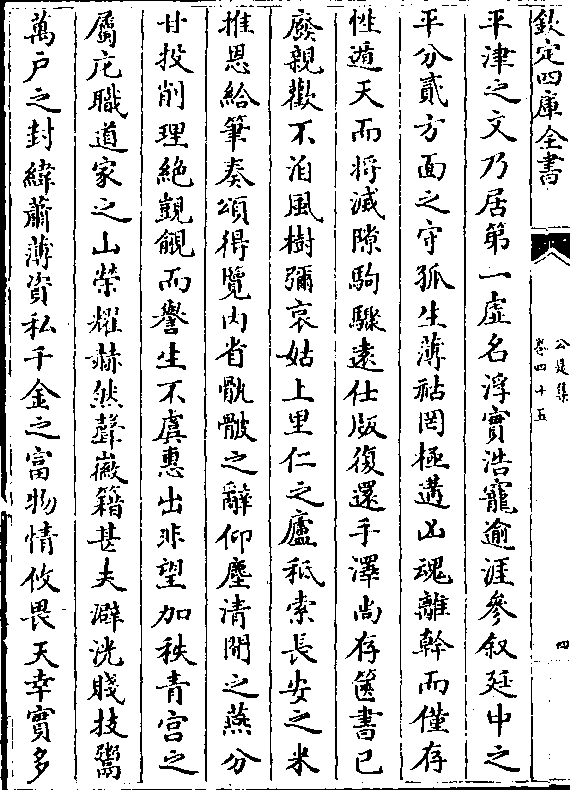 欽定四庫全書
公是集
卷四十五
四
平津之文乃居第一虛名浮實浩寵逾涯參叙廷中之
平分貳方面之守孤生薄祜罔極遘凶魂離幹而僅存
性遁天而將滅隙駒驟遠仕版復還手澤尚存篋書已
廢親歡不洎風樹彌哀姑上里仁之廬秪索長安之米
推恩給筆奏頌得覽内省骫骳之辭仰塵清閒之燕分
甘投削理絶覬覦而譽生不虞惠出非望加秩青宫之
屬庀職道家之山榮耀赫然聲徽籍甚夫澼洸賤技鬻
萬戸之封緯蕭薄資私千金之富物情攸畏天幸實多